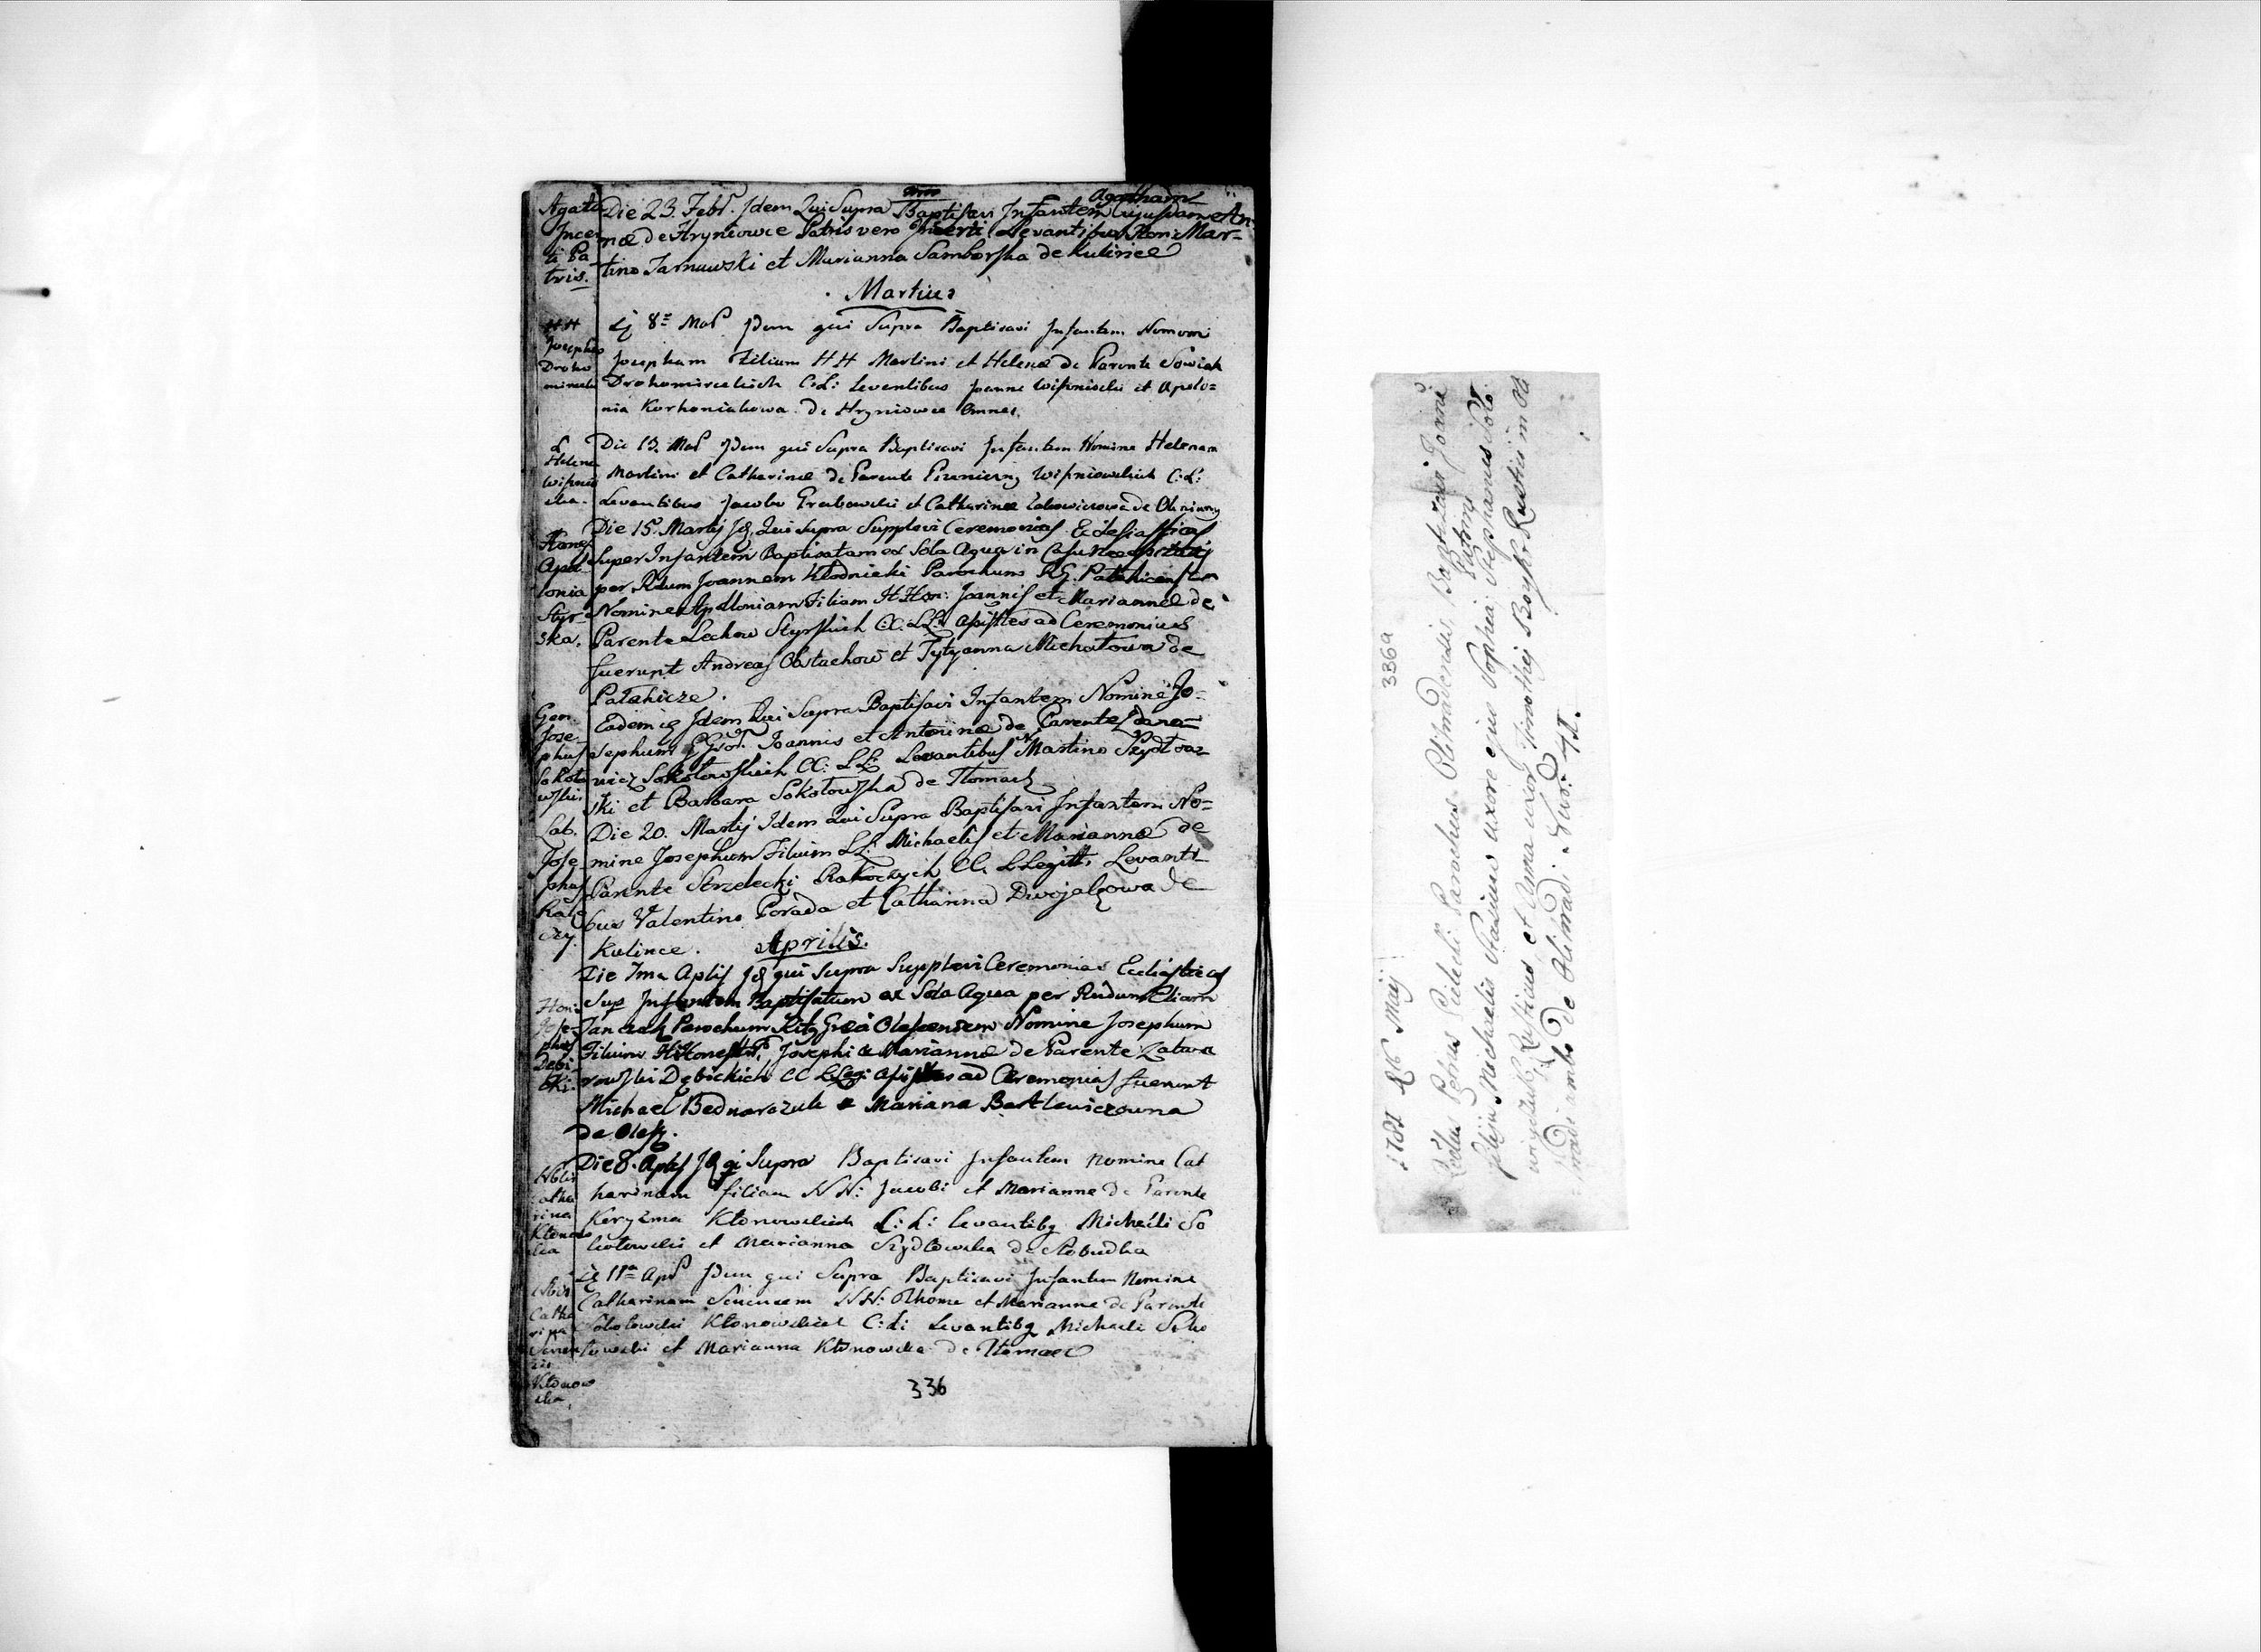 Agata
Incer
ti Pa
tris.
Die 23. Febr. Idem Qui Supra Baptisavi Infantem Agatham Cujusdam An-
næ de Hryniowce Patris vero Incerti Levantibus Hon: Mar-
tino Tarnawski et Marianna Samborska de Kulince
Martius
HH
Josephus
Droho
mirecki
8va Mar Idem qui Supra Baptisavi Infantem Nomine
Josepham Filium HH Martini et Helenæ de Parente Sowiak
Drohomireckich C:L: levantibus Joanne Wisniowski et Apolo=
nia Korhoniakowa de Hryniowce Omnes.
L
Helena
Wisnio
ska.
Die 13. Mar Idem qui Supra Baptisavi Infantem Nomine Helenam
Martini et Catharinæ de Parente Wisniowskich C:L:
Levantibus Jacobo Grabowski et Catharina
Hones
Apol-
lonia
Styr-
ska.
Die 15. Martij Idq Qui Supra Supplevi Ceremonias Eclesiasticas
Super Infantem Baptisatam ex Sola Aqua in Casu Necessitatis
per Rdum Joannem Kłodnicki Parochum R.G. Patahicensem
Nomine Apolloniam Filiam HHon: Joannis et Mariannæ de
Parente Lechow Styrskich CC. LL. Assistes ad Ceremonias
fuerunt Andreas Obstachow et Tytyanna Michałowa de
Patahicze.
Gen.
Jose-
phus
Sokoło
wski.
Eadem Idem Qui Supra Baptisavi Infantem Nomine Jo=
sephum GGsor. Joannis et Antoninæ de Parente Dano-
wicz Sokołowskich CC: LL: Levantibus Martino Szydłow
ski et Barbara Sokołowska de Tłomacz
Lab.
Jose
phus
Rako
czy.
Die 20. Martij Idem Qui Supra Baptisavi Infantem No=
mine Josephum Filium LL: Michaelis et Mariannæ de
Parente Strzelecki Rakoczych CC. LLegitt. Levanti
bus Valentino Porada et Catharina Dwojakowa de
Kulince.
Aprilis.
Hon:
Jose-
phus
Debi-
cki.
Die 7ma Aplis Idq qui Supra Supplevi Ceremonias Eccliasticas
Sup Infantem Baptisatum ex Sola Aqua per Rndum Eliam
Janczak Parochum Ritq Græci Olesensem Nomine Josephum
Filium HHonestor. Josephi et Mariannæ de Parente Zatwa
rowski Dębickich CC LLeg: Assistes ad Ceremonias fuerunt
Michael Bednarczuk et Mariana Bartlewiczowna
de Olesz.
Nblis
Catha
rina
Kłonows
ka
Die 8. Aplis Idq qi Supra Baptisavi Infantem Nomine Cat
harinam filiam NN: Jacobi et Marianne de Parente
Keryzma Kłonowskich L:L: levantibq Michaeli So
kołowski et Marianna Szydłowska de Słobudka
Nblis
Catha
rina
Seren
Kłonow
ska.
11ma Apr Idem qui Supra Baptisavi Infantem Nomine
Catharinam NN: Thome et Marianne de Parente
Sokołowski Kłonowskich C:L: levantibq Michaeli Soko
łowski et Marianna Kłonowska de Tłomacz
336
336a
1781 d 16 Maij
Petrus Parochus Olhradensis, Baptizavi Joanē
filiū Michaelis uxore ejus Sophia: Patrini Stephanus
Rusticus et Anna uxor Timothej Boyko Rustici in Ol
hradi ambo de Olhradi. Nro: 41.